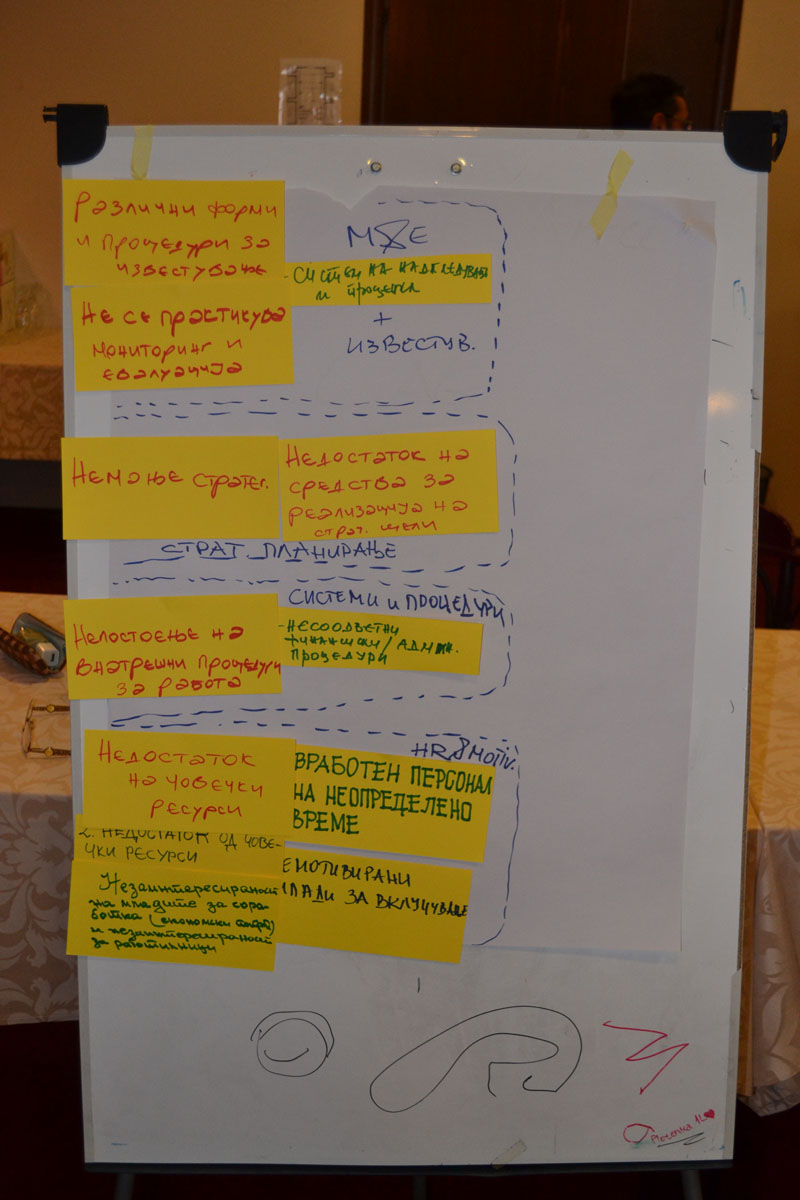 Различни форми
и процедури за
известување
М&Е
- СИСТЕМ НА НАДГЛЕДУВАЊЕ
и процена
+
ИЗВЕСТУВ.
Не се практикува
мониторинг и
евалуација
Немање стратег.
Недостаток на
средства за
реализација на
страт. цели
СТРАТ. ПЛАНИРАЊЕ
СИСТЕМИ и ПРОЦЕДУРИ
Непостоење на
внатрешни процедури
за работа
- НЕСООДВЕТНИ
ФИНАНСИСКИ / АДМИН.
ПРОЦЕДУРИ
HR & МОТИV.
Недостаток
на човечки
ресурси
ВРАБОТЕН ПЕРСОНАЛ
НА НЕОПРЕДЕЛЕНО
ВРЕМЕ
2. НЕДОСТАТОК ОД ЧОВЕ-
ЧКИ РЕСУРСИ
ЕМОТИВИРАНИ
МЛАДИ ЗА ВКЛУЧУВАЊЕ
Незаинтересираност
на младите за сора-
ботка
и незаинтересираност
за работилници